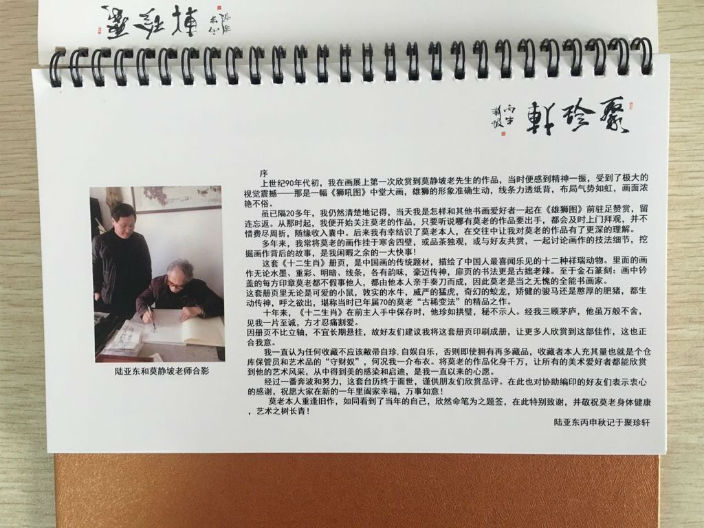 聚珍轩
丙申
序
上世纪90年代初，我在画展上第一次欣赏到莫静坡老先生的作品，当时便感到精神一振，受到了极大的
视觉震撼——那是一幅《狮吼图》中堂大画，雄狮的形象准确生动，线条力透纸背，布局气势如虹，画面浓
艳不俗。
虽已隔20多年，我仍然清楚地记得，当天我是怎样和其他书画爱好者一起在《雄狮图》前驻足赞赏，留
连忘返。从那时起，我便开始关注莫老的作品，只要听说哪有莫老的作品要出手，都会及时上门拜观，并不
惜费尽周折，随缘收入囊中。后来我有幸结识了莫老本人，在交往中让我对莫老的作品有了更深的理解。
多年来，我常将莫老的画作挂于寒舍四壁，或品茶独观，或与好友共赏，一起讨论画作的技法细节，挖
掘画作背后的故事，是我闲暇之余的一大快事！
这套《十二生肖》册页，是中国画的传统题材，描绘了中国人最喜闻乐见的十二种祥瑞动物。里面的画
作无论水墨、重彩、明暗、线条，各有韵味，豪迈传神，扉页的书法更是古拙老辣。至于金石篆刻：画中钤
盖的每方印章莫老都不假事他人，都由他本人亲手奏刀而成，因此莫老是当之无愧的全能书画家。
这套册页里无论是可爱的小鼠，敦实的水牛，威严的猛虎，奇幻的蛟龙，矫健的骏马还是憨厚的肥猪，都生
动传神，呼之欲出，堪称当时已年届70的莫老“古稀变法”的精品之作。
十年来，《十二生肖》在前主人手中保存时，他珍如拱璧，秘不示人。经我三顾茅庐，他虽万般不舍，
见我一片至诚，方才忍痛割爱。
因册页不比立轴，不宜长期悬挂，故好友们建议我将这套册页印刷成册，让更多人欣赏到这部佳作，这也正
合我意。
我一直认为任何收藏不应该敝帚自珍，自娱自乐，否则即使拥有再多藏品，收藏者本人充其量也就是个仓
库保管员和艺术品的“守财奴”，何况我一介布衣。将莫老的作品化身千万，让所有的美术爱好者都能欣赏
到他的艺术风采，从中得到美的感染和启迪，是我一直以来的心愿。
经过一番奔波和努力，这套台历终于面世，谨供朋友们欣赏品评，在此也对协助编印的好友们表示衷心
的感谢，祝愿大家在新的一年里阖家幸福，万事如意！
莫老本人重逢旧作，如同看到了当年的自己，欣然命笔为之题签，在此特别致谢，并敬祝莫老身体健康
，艺术之树长青！
陆亚东丙申秋记于聚珍轩
陆亚东和莫静坡老师合影